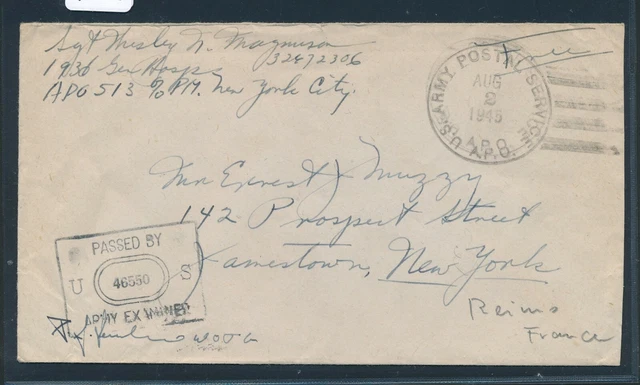 Sgt Wesley N. Magnuson
32472306
193d Gen Hosp
APO 513 % P.M. New York City.
Free
U.S. ARMY POSTAL SERVICE
AUG
2
1945
A.P.O.
A.P.O.
Mr Ernest J Muzzy
142 Prospect Street
Jamestown, New York
PASSED BY
U 46550 S
ARMY EXAMINER
Reims
France